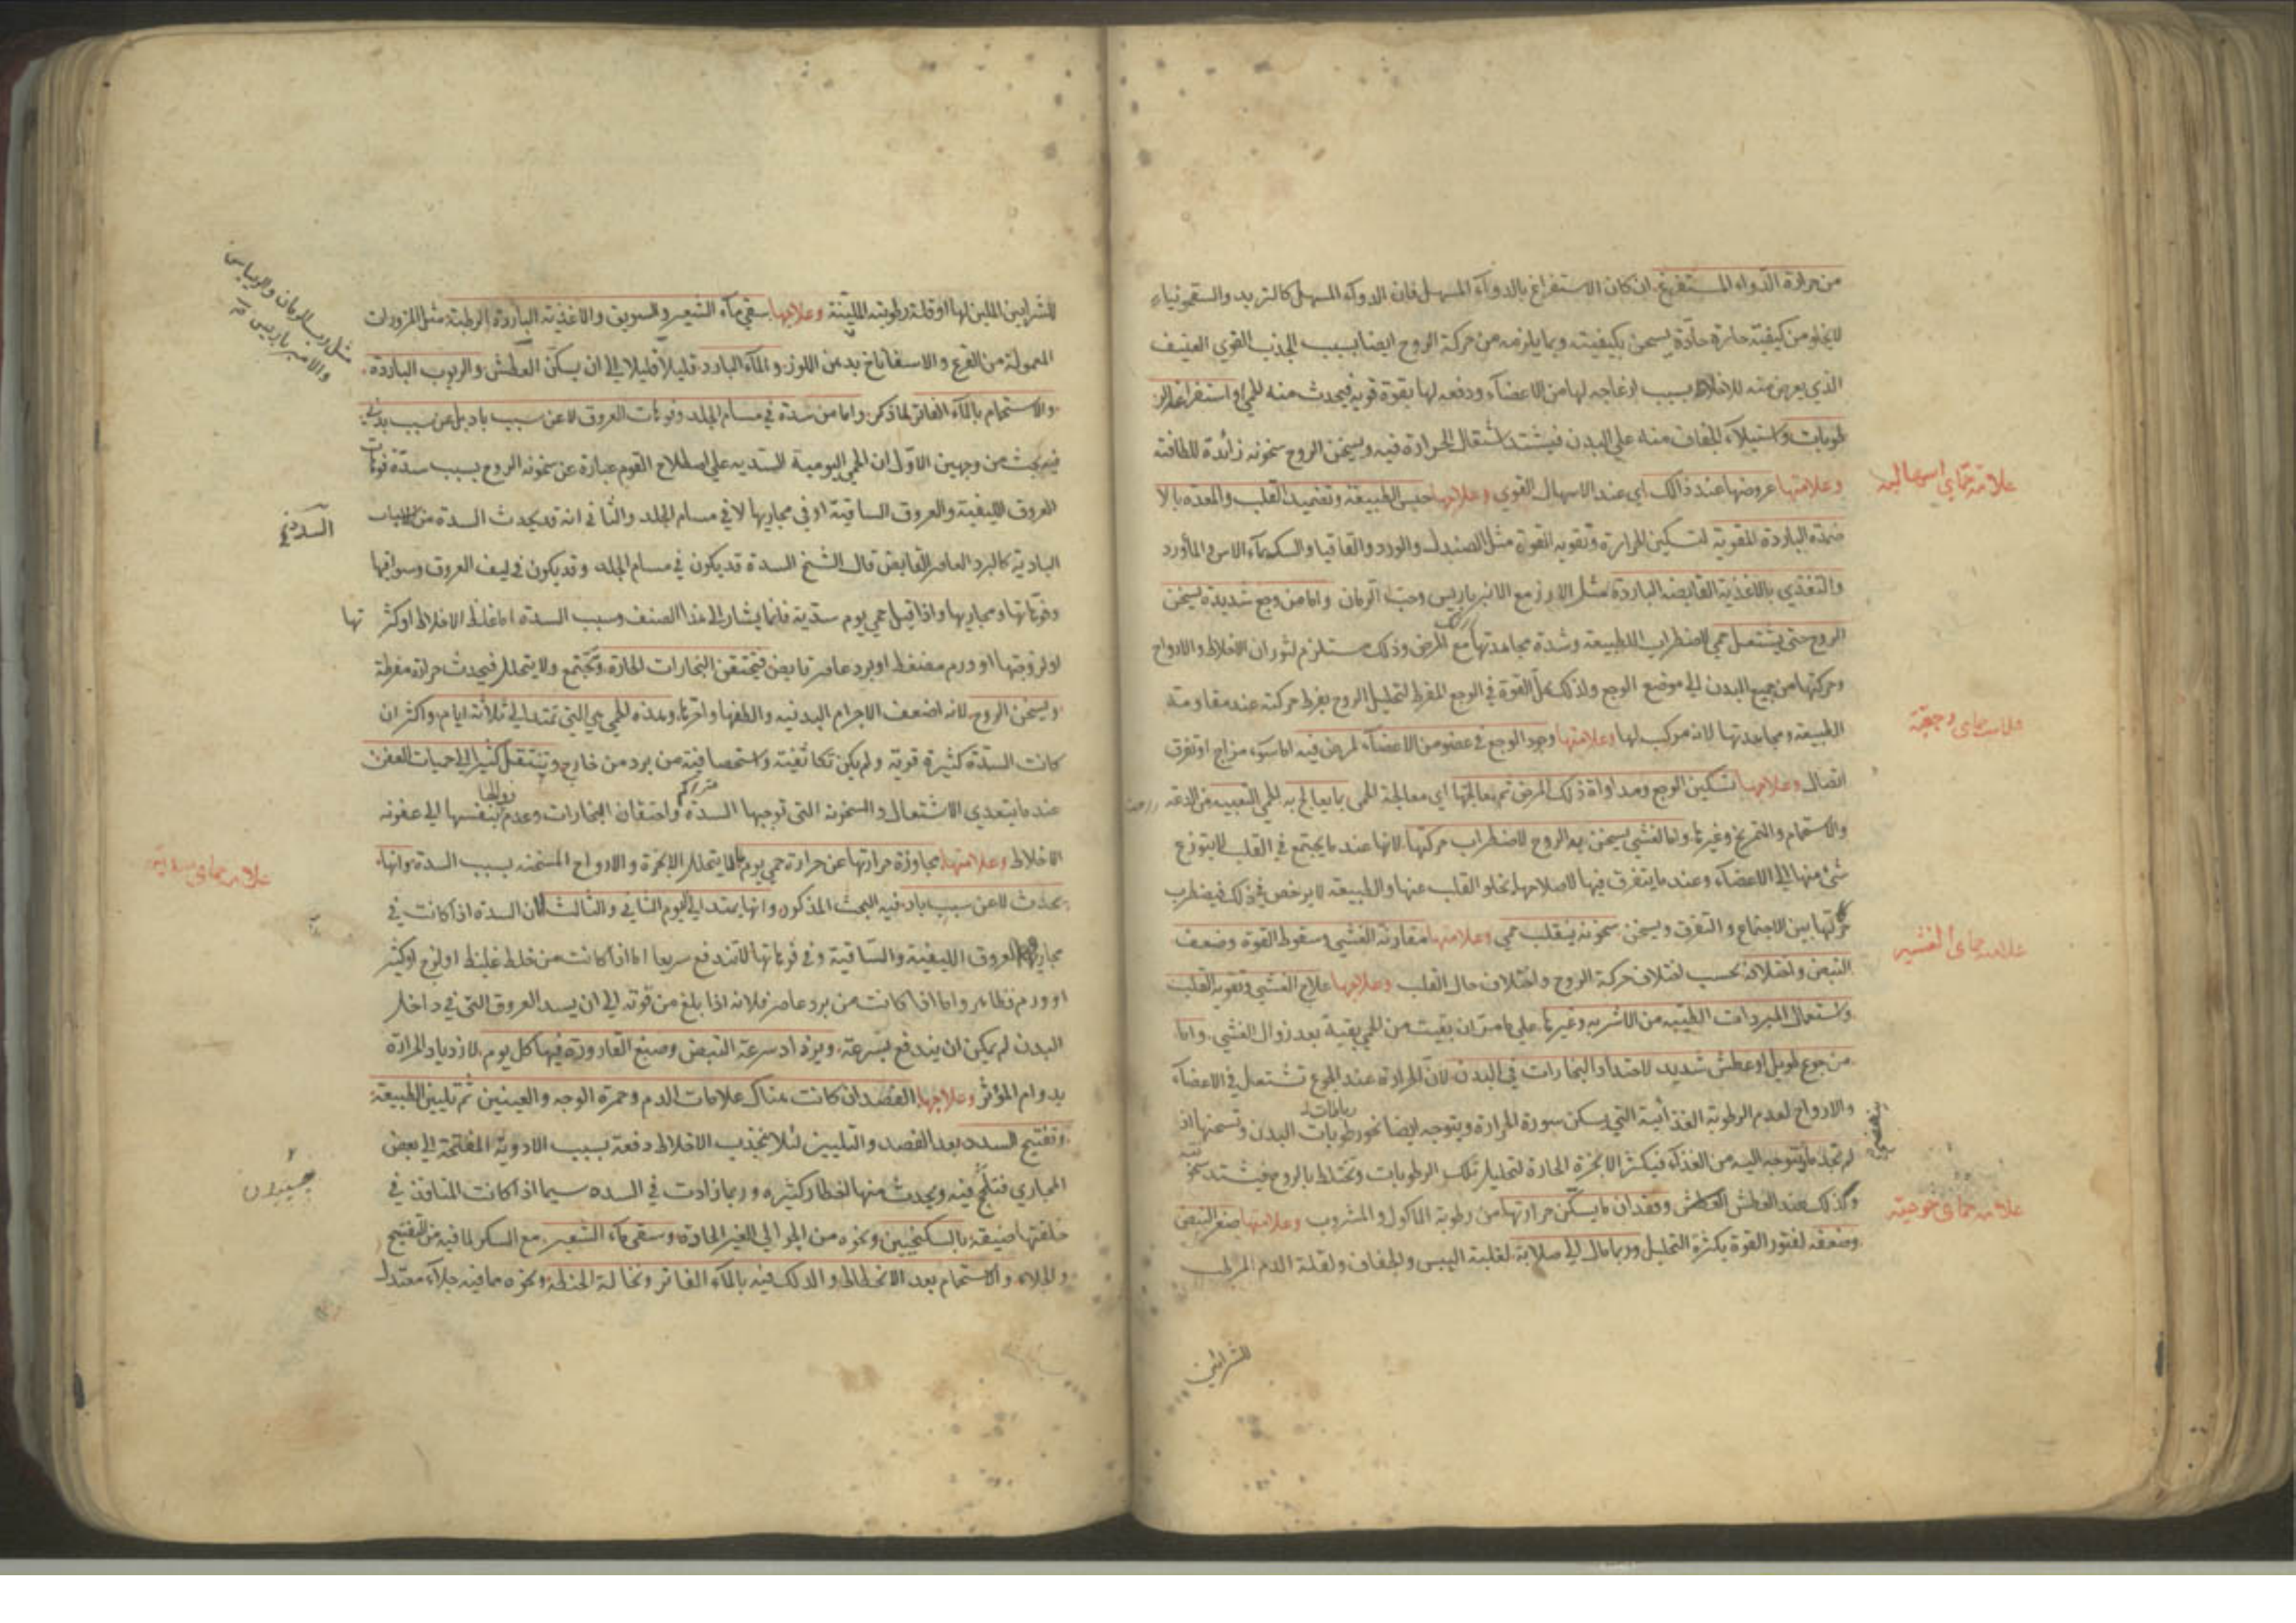 من حرارة الدواء المستفرغ ان كان الاستفراغ بالدواء المسهل فان الدواء المسهل كالتربد والسقمونياء
لا يخلو من كيفية حارة حادة يسخن بكيفيته وبما يلزمه من حركة الروح ايضا بسبب الجذب القوي العنيف
الذي يعرض منه للاخلاط بسبب ازعاجه لها من الاعضاء ودفعه لها بقوة قوية فيحدث منه الحمى او استفراغ الر
طوبات واستيلاء الجفاف منه على البدن فيشتد اشتعال الحرارة فيه ويسخن الروح سخونه زائدة للطافته
وعلامتها عروضها عند ذالك اى عند الاسهال القوي وعلاجها حبس الطبيعة وتضميد القلب والمعده بالا
علامة حماى اسهاليه
ضمدة الباردة المقوية لتسكين الحرارة وتقوية القوة مثل الصندل والورد والقاقيا والسك بماء الاس والماورد
والتغذي بالاغذية القابضه الباردة مثل الارز مع الانبرباريس وحب الرمان واما من وجع شديدة يسخن
الروح حتى يشتعل حمى لاضطراب الطبيعة وشدة مجاهدتها مع المرض وذلك مستلزم لثوران الاخلاط والارواح
وحركتها من جميع البدن الى موضع الوجع ولذلك تحل القوة في الوجع المفرط لتحليل الروح بفرط حركته عند مقاومة
الطبيعة ومجاهدتها لانه مركب لها وعلامتها وجود الوجع في عضو من الاعضاء لمرض فيه اما سوء مزاج او تفرق
علامت حماى وجعية
اتصال وعلاجها تسكين الوجع ومداواة ذلك المرض ثم معالجتها اى معالجة الحمى بما يعالج به الحمى التعبيه من الدعة
والاستحمام والتمريخ وغيرها واما الغشي يسخن به الروح لاضطراب حركتها لانها عند ما يجتمع في القلب لا يتوزع
شئ منها الى الاعضاء وعند ما يتفرق فيها لاصلاحها يخلو القلب عنها والطبيعة لا يرخص في ذلك فيضطرب
حركتها بين الاجتماع والتفرق ويسخن سخونه ينقلب حمى وعلامتها مقارنة الغشي وسقوط القوة وضعف
علامة حماى الغشيه
النبض واختلافه بحسب اختلاف حركة الروح واختلاف حال القلب وعلاجها علاج الغشي وتقوية القلب
واستعمال المبردات الطيبه من الاشربه وغيرها على ما مر ان بقيت من الحمى بقية بعد زوال الغشي واما
من جوع طويل او عطش شديد لاحتداد البخارات في البدن لان الحرارة عند الجوع تشتعل في الاعضاء
والارواح لعدم الرطوبة الغذائية التي يسكن سورة الحرارة ويتوجه ايضا نحو رطوبات البدن وتسخنها اذ
لم تجد ما تتوجه اليه من الغذاء فيكثر الابخرة الحارة لتحليل تلك الرطوبات وتختلط بالروح فيشتد سخو
وكذلك عند العطش وفقدان ما يسكن حرارتها من رطوبة الماكول والمشروب وعلامتها صغر النبض
علامة حماى جوعيه
وضعفه لفتور القوة بكثرة التحليل وربما مال الى صلابة لغلبة اليبس والجفاف ولقلة الدم المرطب
للشرائين
للشرايين الملين لها او قلة رطوبته اللينة وعلاجها سقي ماء الشعير والسويق والاغذية الباردة الرطبة مثل المزورات
مثل رب الرمان والريباس
والامبرباريس
المعمولة من القرع والاسفاناخ بدهن اللوز والماء البارد قليلا قليلا الى ان يسكن العطش والربوب الباردة
والاستحمام بالماء الفاتر لما ذكر واما من سدة في مسام الجلد وفوهات العروق لا عن سبب باد بل عن سبب بدني
فيه بحث من وجهين الاول ان الحمى اليومية السدية على اصطلاح القوم عبارة عن سخونه الروح بسبب سدة فوهات
العروق الليفية والعروق الساقية او في مجاريها لا في مسام الجلد والثاني انه قد يحدث السدة من الاسباب
البادية كالبرد العاصر القابض قال الشيخ السدة قد يكون في مسام الجلد وقد يكون في ليف العروق وسواقيها
وفوهاتها ومجاريها واذا قيل حمى يوم سدية فانما يشار الى هذا الصنف وسبب السدة اما غلظ الاخلاط او كثر تها
او لزوجتها او ورم مضغط او برد عاصر قابض فتحتقن البخارات الحارة وتجتمع ولا يتحلل فيحدث حرارة مفرطة
ويسخن الروح لانه اضعف الاجرام البدنيه والطفها واحرها وهذه الحمى هي التي تمتد الى ثلاثة ايام واكثر ان
كانت السدة كثيرة قوية ولم يكن تكاثفية واستحصافية من برد من خارج وتنتقل كثيرا الى حميات العفن
عند ما يتعدي الاشتعال والسخونه التي توجبها السدة واحتقان البخارات وعدم تنفسها الى عفونه
الاخلاط وعلامتها مجاوزة حرارتها عن حرارة حمى يوم لما لا يتحلل الابخرة والارواح المسخنه بسبب السدة وانها
يحدث لا عن سبب باد فيه البحث المذكور وانها يمتد الى اليوم الثاني والثالث لان السدة اذا كانت في
مجاري العروق الليفية والساقية وفي فوهاتها لا تندفع سريعا اما اذا كانت من خلط غليظ او لزج او كثير
او ورم فظاهر واما اذا كانت من برد عاصر فلانه اذا بلغ من قوته الى ان يسد العروق التي في داخل
البدن لم يمكن ان يندفع بسرعة ويزداد سرعة النبض وصبغ القارورة فيها كل يوم لازدياد الحرارة
بدوام المؤثر وعلاجها الفصد ان كانت هناك علامات الدم وحمرة الوجه والعينين ثم تليين الطبيعة
وتفتيح السدد بعد الفصد والتليين لئلا تنجذب الاخلاط دفعة بسبب الادوية المفتحة الى بعض
المجاري فتلحج فيه ويحدث منها اخطار كثيره وربما زادت في السده سيما اذا كانت المنافذ في
خلقتها ضيقة بالسكنجبين ونحوه من الجوالي الغير الحادة وسقى ماء الشعير مع السكر لما فيه من التفتيح
والجلاء والاستحمام بعد الانحطاط والدلك فيه بالماء الفاتر ونخالة الحنطة ونحوه مما فيه جلاء معتدل